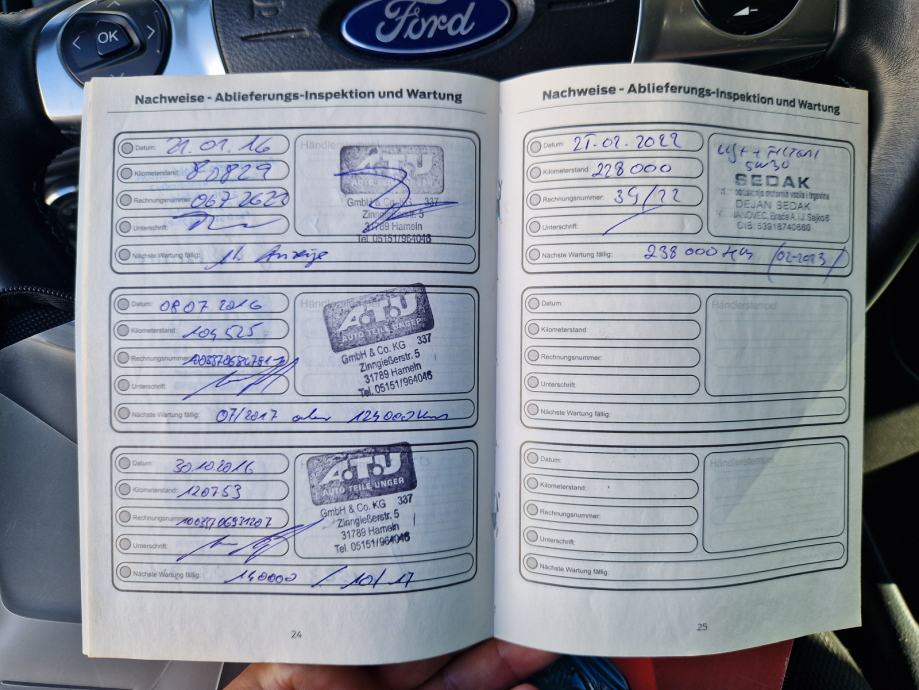 OK
Ford
Nachweise - Ablieferungs-Inspektion und Wartung
Datum: 21.01.16
Kilometerstand: 80829
Rechnungsnummer:
Unterschrift:
Nächste Wartung fällig: lt. Anzeige
A.T.U
AUTO TEILE UNGER
GmbH & Co. KG 337
Zinngießerstr. 5
31789 Hameln
Tel. 05151/964046
Datum: 08.07.2016
Kilometerstand: 104525
Rechnungsnummer:
Unterschrift:
Nächste Wartung fällig: 07/2017 oder 124000 km
A.T.U
AUTO TEILE UNGER
GmbH & Co. KG 337
Zinngießerstr. 5
31789 Hameln
Tel. 05151/964046
Datum: 30.10.2016
Kilometerstand: 120753
Rechnungsnummer:
Unterschrift:
Nächste Wartung fällig: 140000 / 10/17
A.T.U
AUTO TEILE UNGER
GmbH & Co. KG 337
Zinngießerstr. 5
31789 Hameln
Tel. 05151/964046
24
Nachweise - Ablieferungs-Inspektion und Wartung
Datum:
Kilometerstand: 228000
Rechnungsnummer: 34/22
Unterschrift:
Nächste Wartung fällig: 238 000 km (02-2023)
5w30
SEDAK
DEJAN SEDAK
Datum:
Kilometerstand:
Rechnungsnummer:
Unterschrift:
Nächste Wartung fällig:
Datum:
Kilometerstand:
Rechnungsnummer:
Unterschrift:
Nächste Wartung fällig:
25